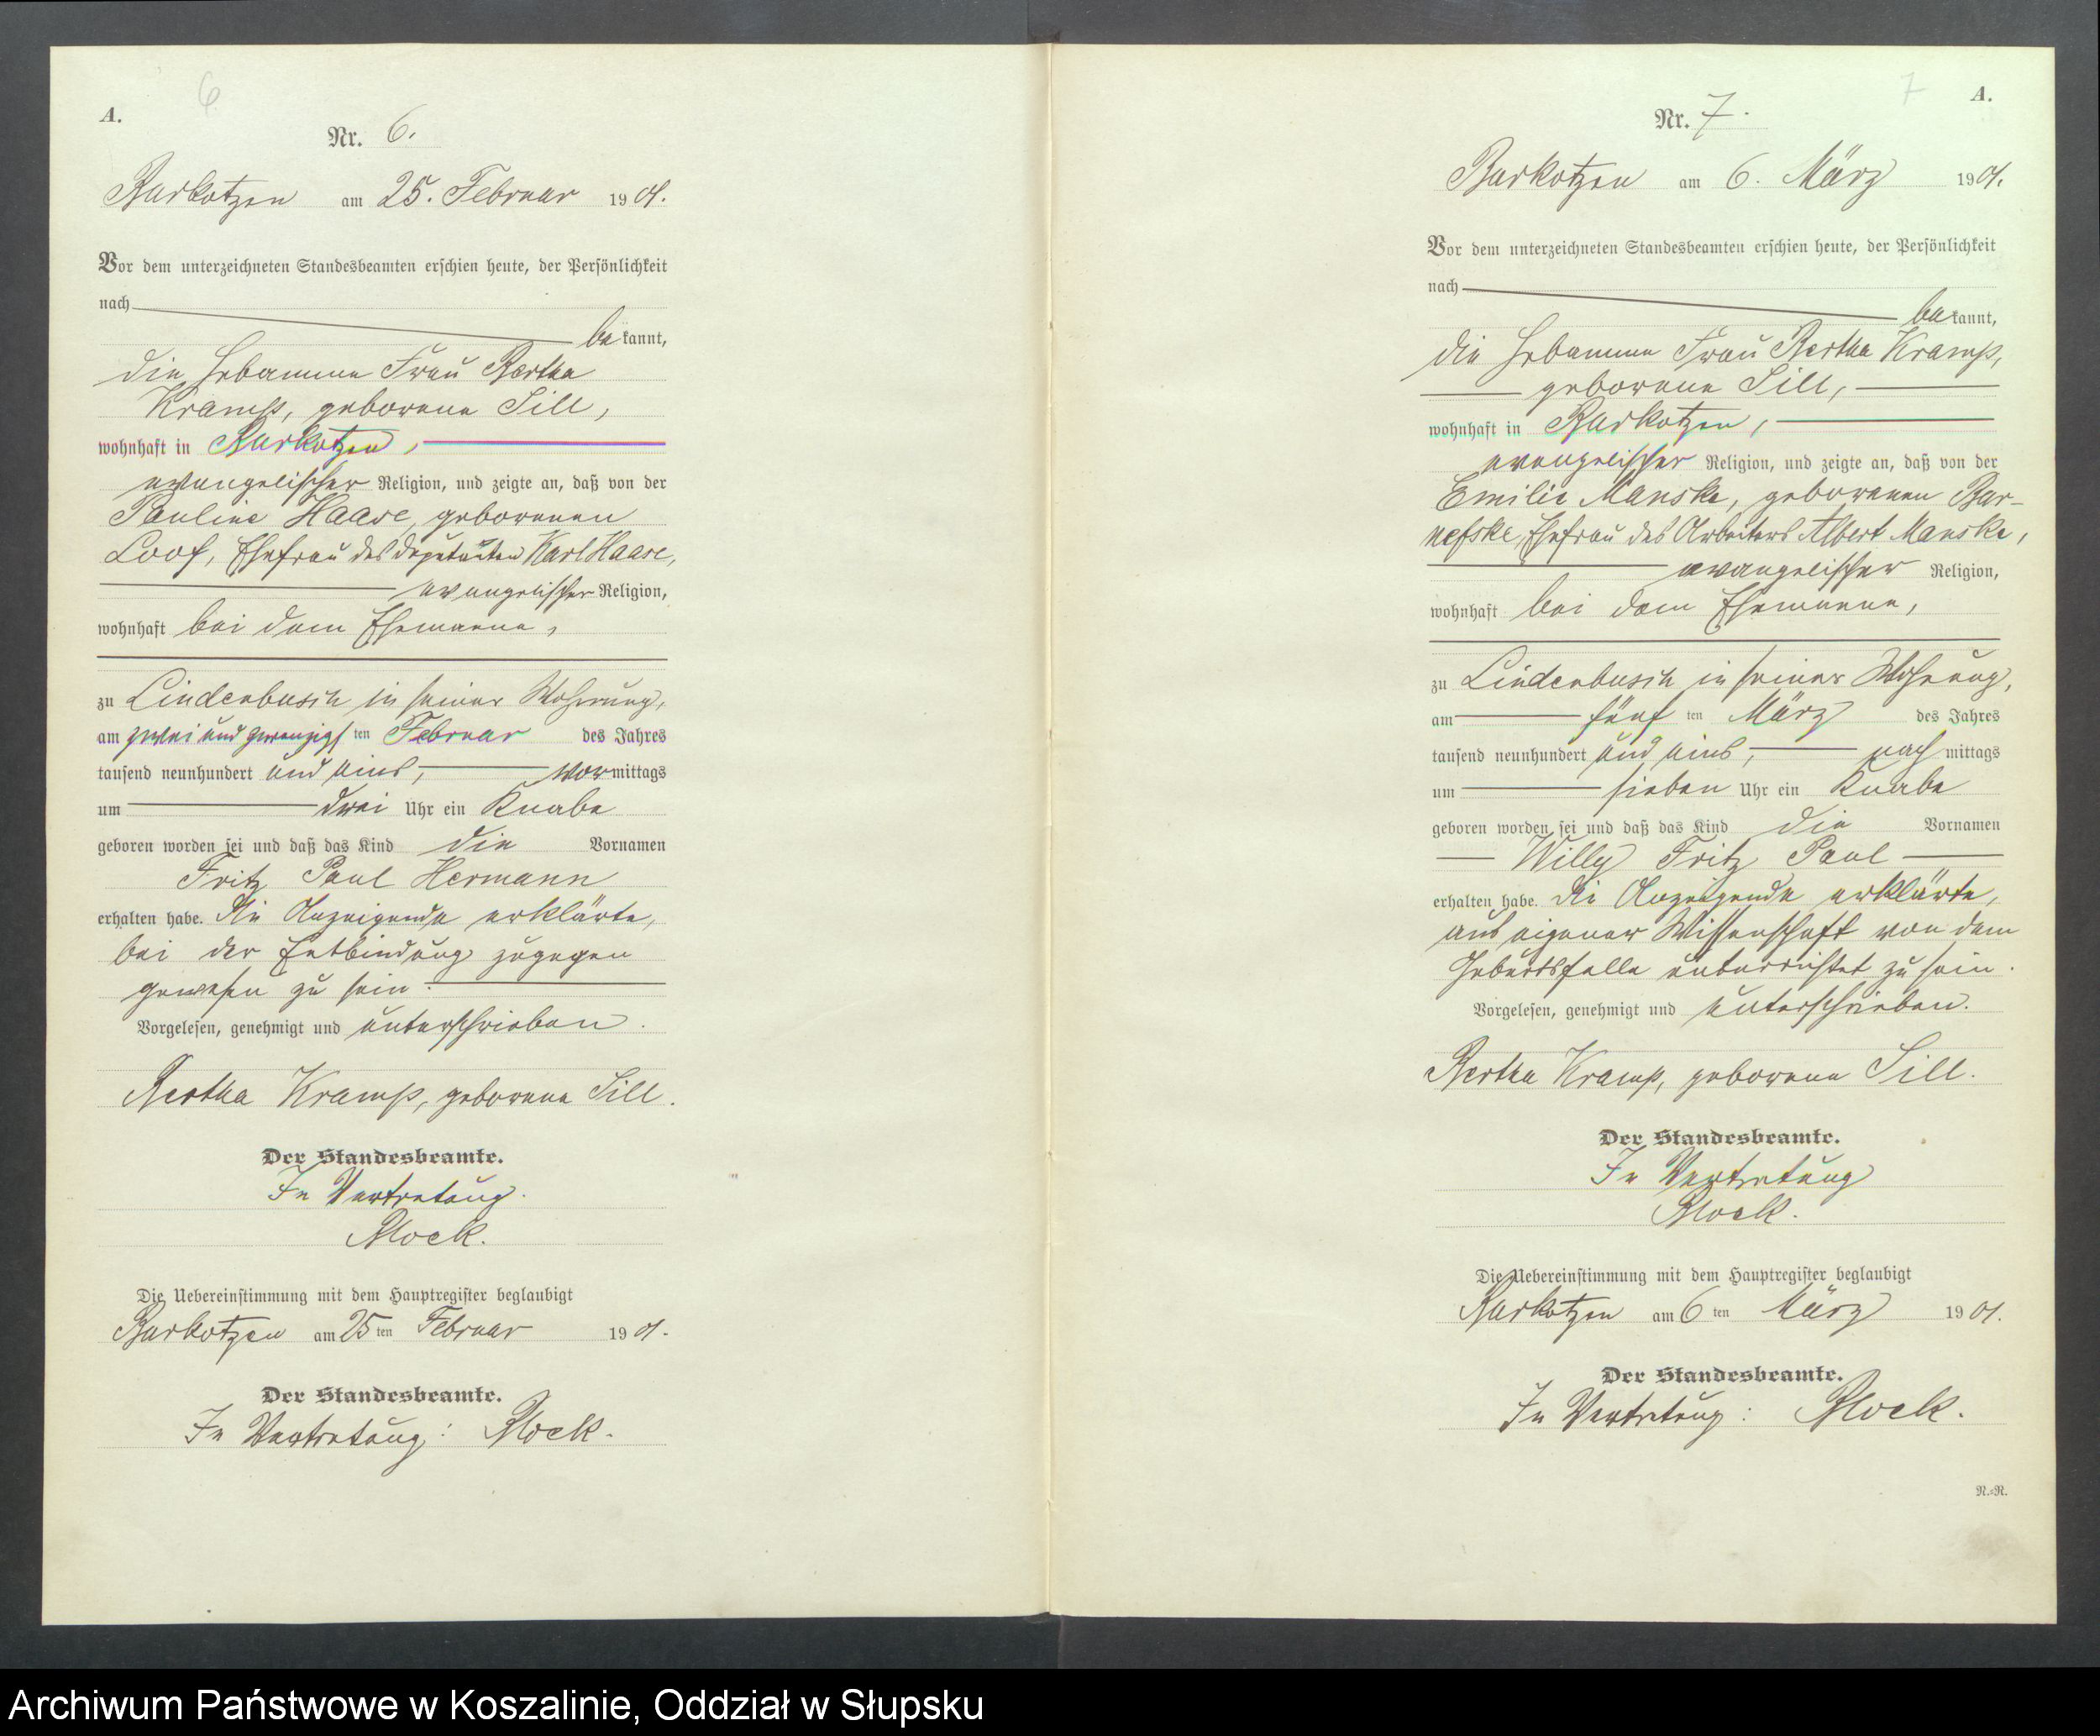 6
A.
Nr. 6.
Barkotzen am 25. Februar 1901.
Vor dem unterzeichneten Standesbeamten erschien heute, der Persönlichkeit
nach
bekannt,
die Hebamme Frau Bertha
Kramp, geborene Sill,
wohnhaft in Barkotzen,
evangelischer Religion, und zeigte an, daß von der
Pauline Haase, geborenen
Loof, Ehefrau des Deputanten Karl Haase,
evangelischer Religion,
wohnhaft bei dem Ehemanne,
zu Lindenbusch in seiner Wohnung,
am zwei und zwanzigsten Februar des Jahres
tausend neunhundert und eins, vormittags
um drei Uhr ein Knabe
geboren worden sei und daß das Kind die Vornamen
Fritz Paul Hermann
erhalten habe. Die Anzeigende erklärte,
bei der Entbindung zugegen
gewesen zu sein.
Vorgelesen, genehmigt und unterschrieben.
Bertha Kramp, geborene Sill.
Der Standesbeamte.
In Vertretung.
Block.
Die Uebereinstimmung mit dem Hauptregister beglaubigt
Barkotzen am 25ten Februar 1901.
Der Standesbeamte.
In Vertretung: Block.
7
A.
Nr. 7.
Barkotzen am 6. März 1901.
Vor dem unterzeichneten Standesbeamten erschien heute, der Persönlichkeit
nach
bekannt,
die Hebamme Frau Bertha Kramp,
geborene Sill,
wohnhaft in Barkotzen,
evangelischer Religion, und zeigte an, daß von der
Emilie Manske, geborenen Bar-
nefske, Ehefrau des Arbeiters Albert Manske,
evangelischer Religion,
wohnhaft bei dem Ehemanne,
zu Lindenbusch in seiner Wohnung,
am fünf ten März des Jahres
tausend neunhundert und eins, nachmittags
um sieben Uhr ein Knabe
geboren worden sei und daß das Kind die Vornamen
Willy Fritz Paul
erhalten habe. Die Anzeigende erklärte,
aus eigener Wissenschaft von dem
Geburtsfalle unterrichtet zu sein.
Vorgelesen, genehmigt und unterschrieben.
Bertha Kramp, geborene Sill.
Der Standesbeamte.
In Vertretung
Block.
Die Uebereinstimmung mit dem Hauptregister beglaubigt
Barkotzen am 6ten März 1901.
Der Standesbeamte.
In Vertretung: Block.
N.=R.
Archiwum Państwowe w Koszalinie, Oddział w Słupsku